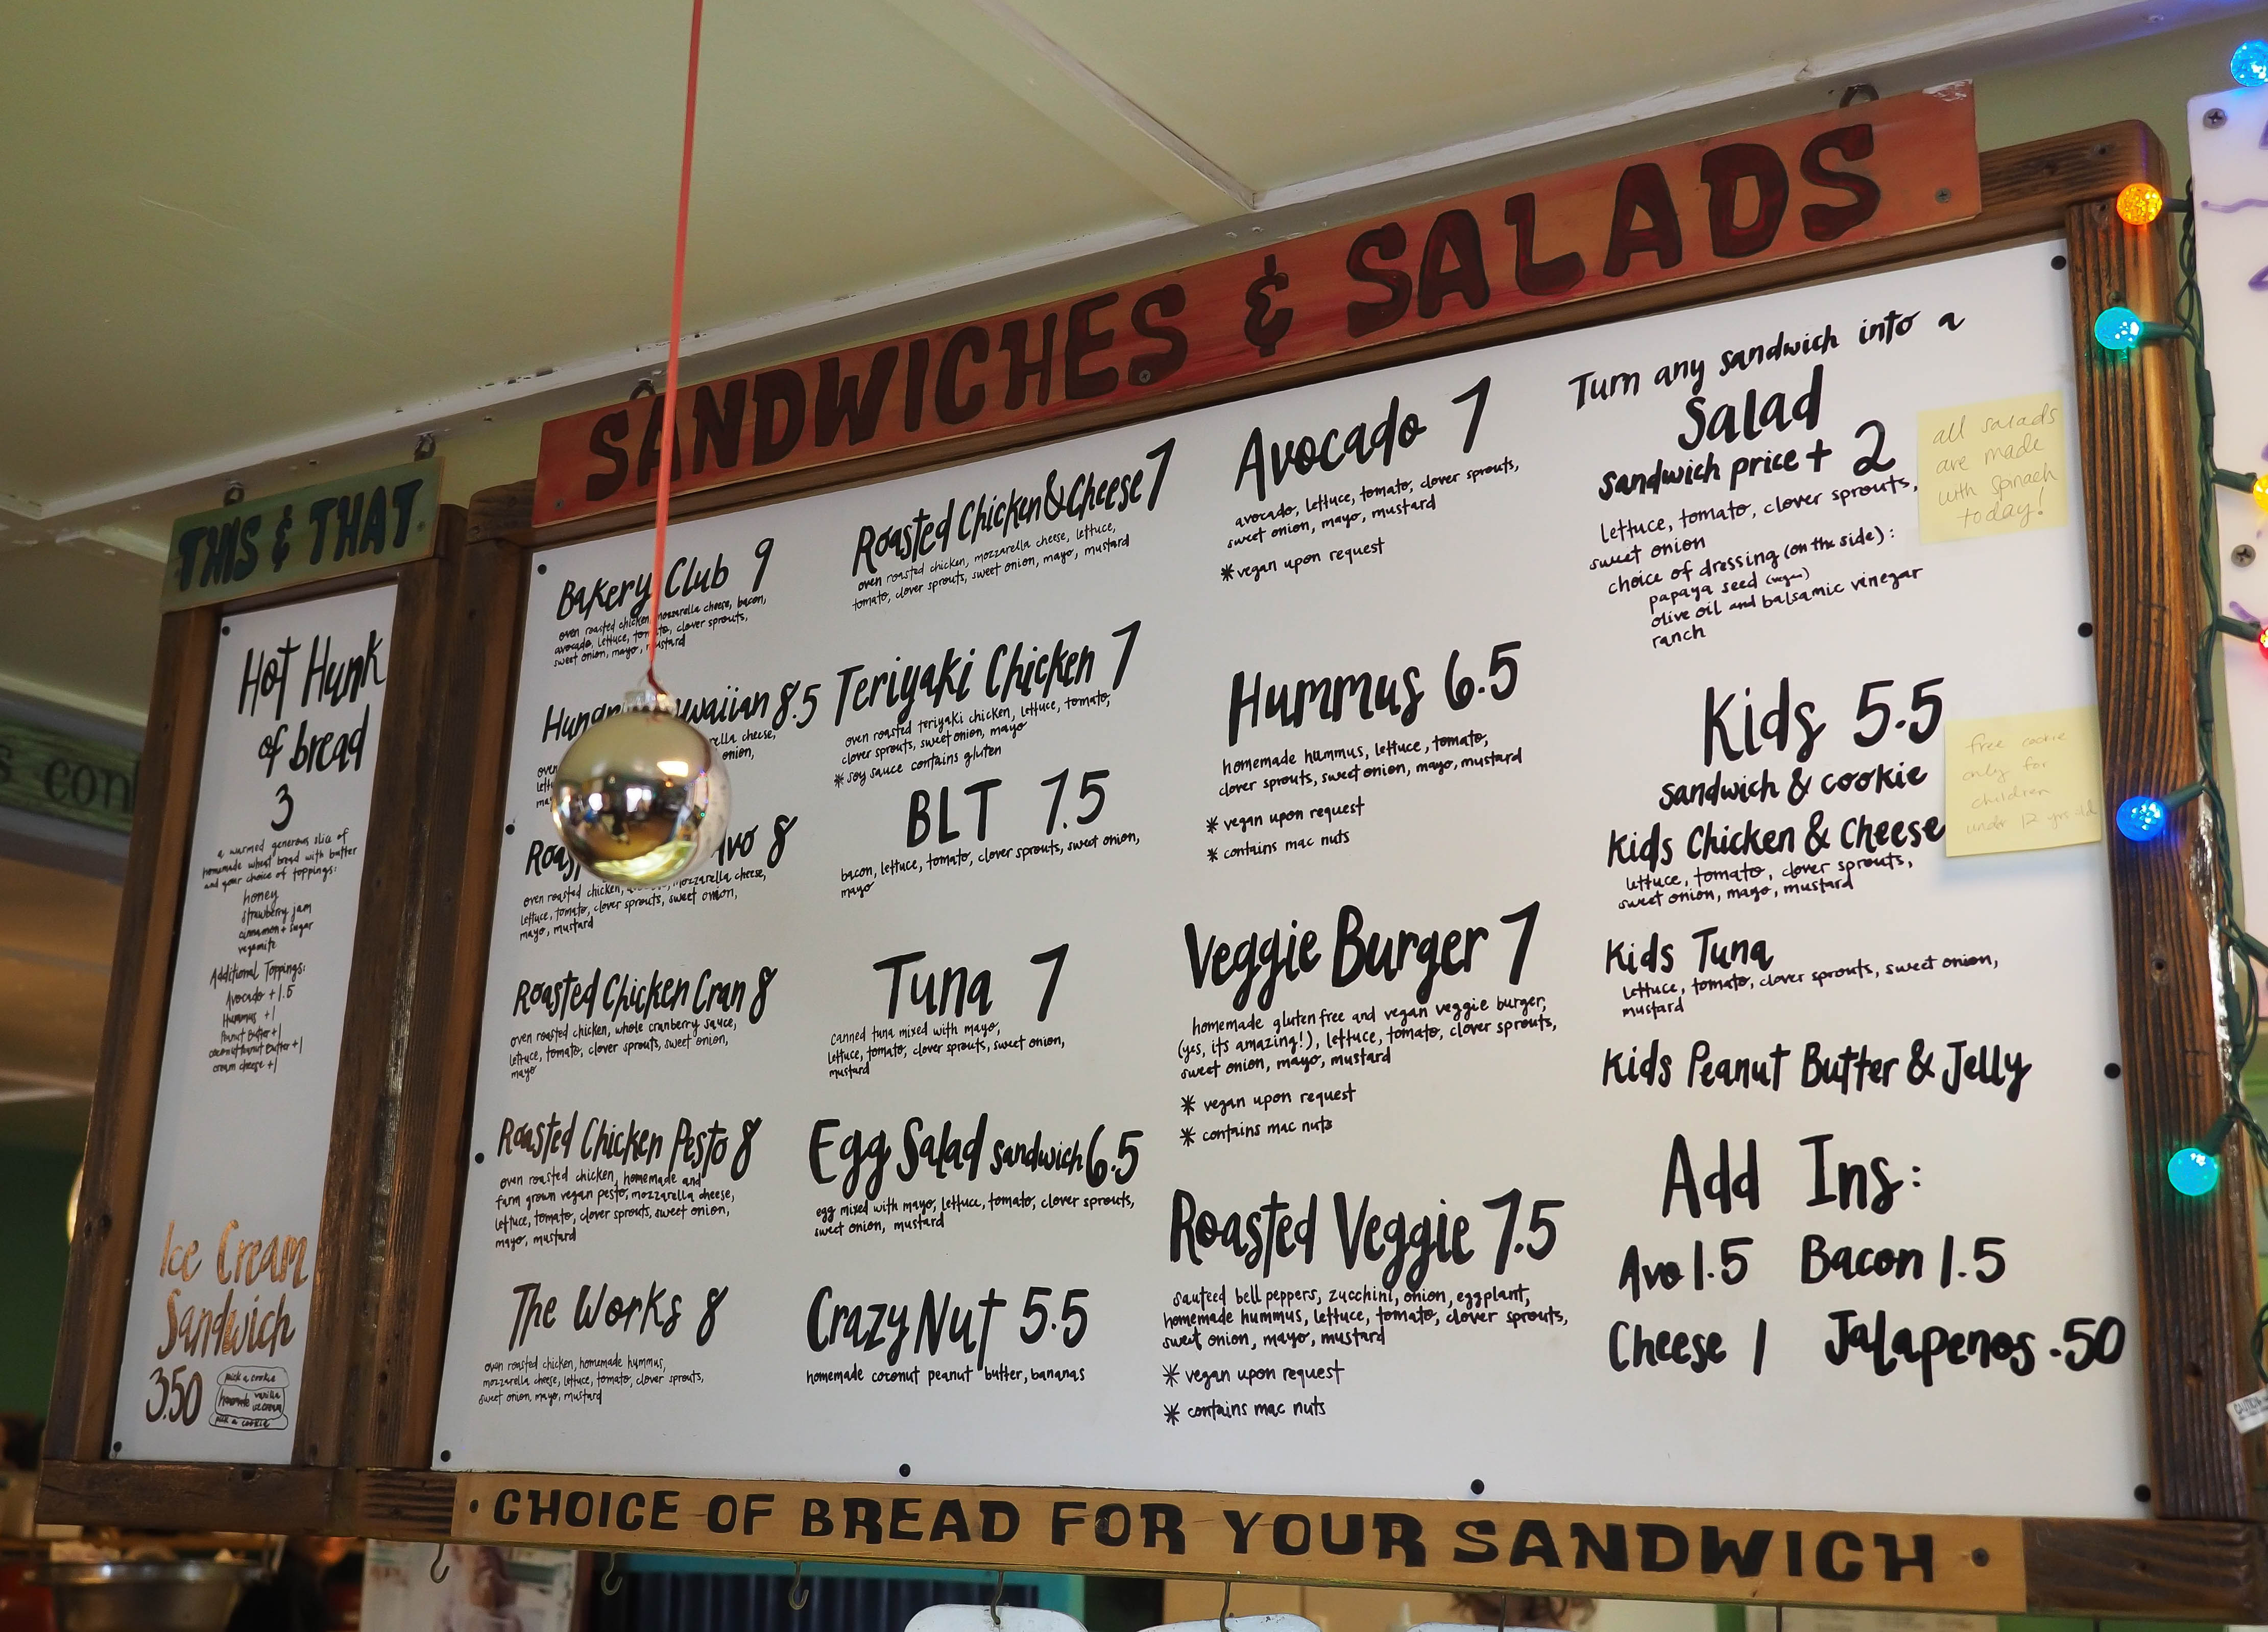 THIS & THAT
Hot Hunk
of bread
3
a warmed generous slice of
homemade wheat bread with butter
and your choice of toppings:
honey
strawberry jam
cinnamon + sugar
vegemite
Additional Toppings:
Avocado +1.5
Hummus +1
Peanut Butter +1
coconut Peanut Butter +1
cream cheese +1
Ice Cream
Sandwich
3.50
pick a cookie
homemade vanilla
ice cream
pick a cookie
SANDWICHES & SALADS
Bakery Club 9
oven roasted chicken, mozzarella cheese, bacon,
avocado, lettuce, tomato, clover sprouts,
sweet onion, mayo, mustard
8.5
cheese,
onion,
Avo 8
oven roasted chicken, mozzarella cheese,
lettuce, tomato, clover sprouts, sweet onion,
mayo, mustard
Roasted Chicken Cran 8
oven roasted chicken, whole cranberry sauce,
lettuce, tomato, clover sprouts, sweet onion,
mayo
Roasted Chicken Pesto 8
oven roasted chicken, homemade and
farm grown vegan pesto, mozzarella cheese,
lettuce, tomato, clover sprouts, sweet onion,
mayo, mustard
The Works 8
oven roasted chicken, homemade hummus,
mozzarella cheese, lettuce, tomato, clover sprouts,
sweet onion, mayo, mustard
Roasted Chicken & Cheese 7
oven roasted chicken, mozzarella cheese, lettuce,
tomato, clover sprouts, sweet onion, mayo, mustard
Teriyaki Chicken 7
oven roasted teriyaki chicken, lettuce, tomato,
clover sprouts, sweet onion, mayo
* soy sauce contains gluten
BLT 7.5
bacon, lettuce, tomato, clover sprouts, sweet onion,
mayo
Tuna 7
canned tuna mixed with mayo,
lettuce, tomato, clover sprouts, sweet onion,
mustard
Egg Salad sandwich 6.5
egg mixed with mayo, lettuce, tomato, clover sprouts,
sweet onion, mustard
Crazy Nut 5.5
homemade coconut peanut butter, bananas
Avocado 7
avocado, lettuce, tomato, clover sprouts,
sweet onion, mayo, mustard
* vegan upon request
Hummus 6.5
homemade hummus, lettuce, tomato,
clover sprouts, sweet onion, mayo, mustard
* vegan upon request
* contains mac nuts
Veggie Burger 7
homemade gluten free and vegan veggie burger,
(yes, its amazing!), lettuce, tomato, clover sprouts,
sweet onion, mayo, mustard
* vegan upon request
* contains mac nuts
Roasted Veggie 7.5
sauteed bell peppers, zucchini, onion, eggplant,
homemade hummus, lettuce, tomato, clover sprouts,
sweet onion, mayo, mustard
* vegan upon request
* contains mac nuts
Turn any sandwich into a
Salad
sandwich price + 2
lettuce, tomato, clover sprouts,
sweet onion
choice of dressing (on the side):
papaya seed (vegan)
olive oil and balsamic vinegar
ranch
all salads
are made
with spinach
today!
Kids 5.5
sandwich & cookie
free cookie
only for
children
under 12 yrs old
Kids Chicken & Cheese
lettuce, tomato, clover sprouts,
sweet onion, mayo, mustard
Kids Tuna
lettuce, tomato, clover sprouts, sweet onion,
mustard
Kids Peanut Butter & Jelly
Add Ins:
Avo 1.5 Bacon 1.5
Cheese 1 Jalapenos .50
CHOICE OF BREAD FOR YOUR SANDWICH